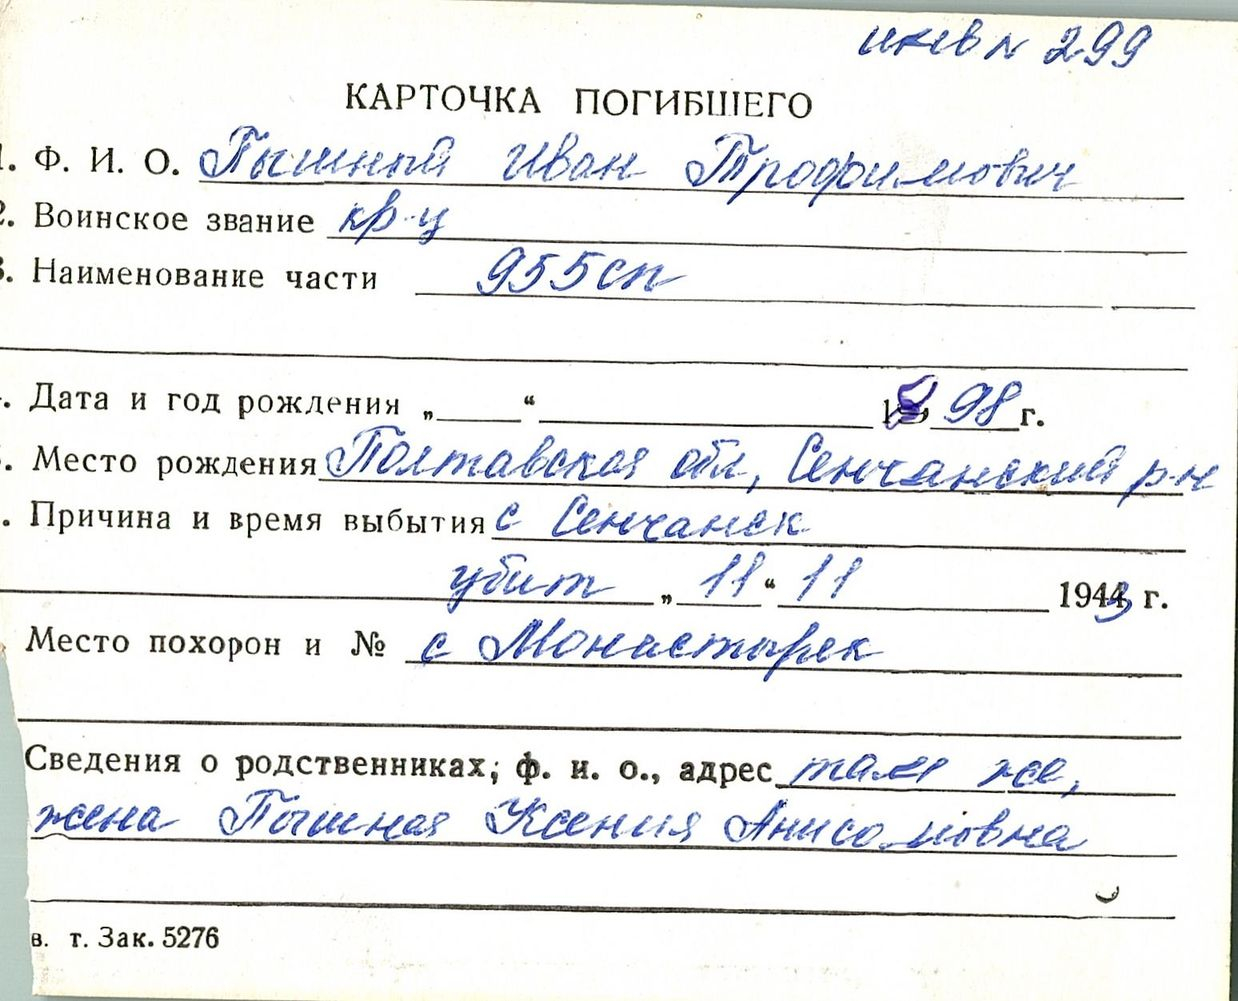 инв № 299
КАРТОЧКА ПОГИБШЕГО
1. Ф. И. О. Пышный Иван Трофимович
2. Воинское звание кр-ц
3. Наименование части 955 сп
. Дата и год рождения „ “ 1898 г.
. Место рождения Полтавская обл, Сенчанский р-н
. Причина и время выбытия с Сенчанск
убит „ 11 “ 11 1943 г.
Место похорон и № с Монастырек
Сведения о родственниках, ф. и. о., адрес там же,
жена Пышная Ксения Анисомовна
в. т. Зак. 5276